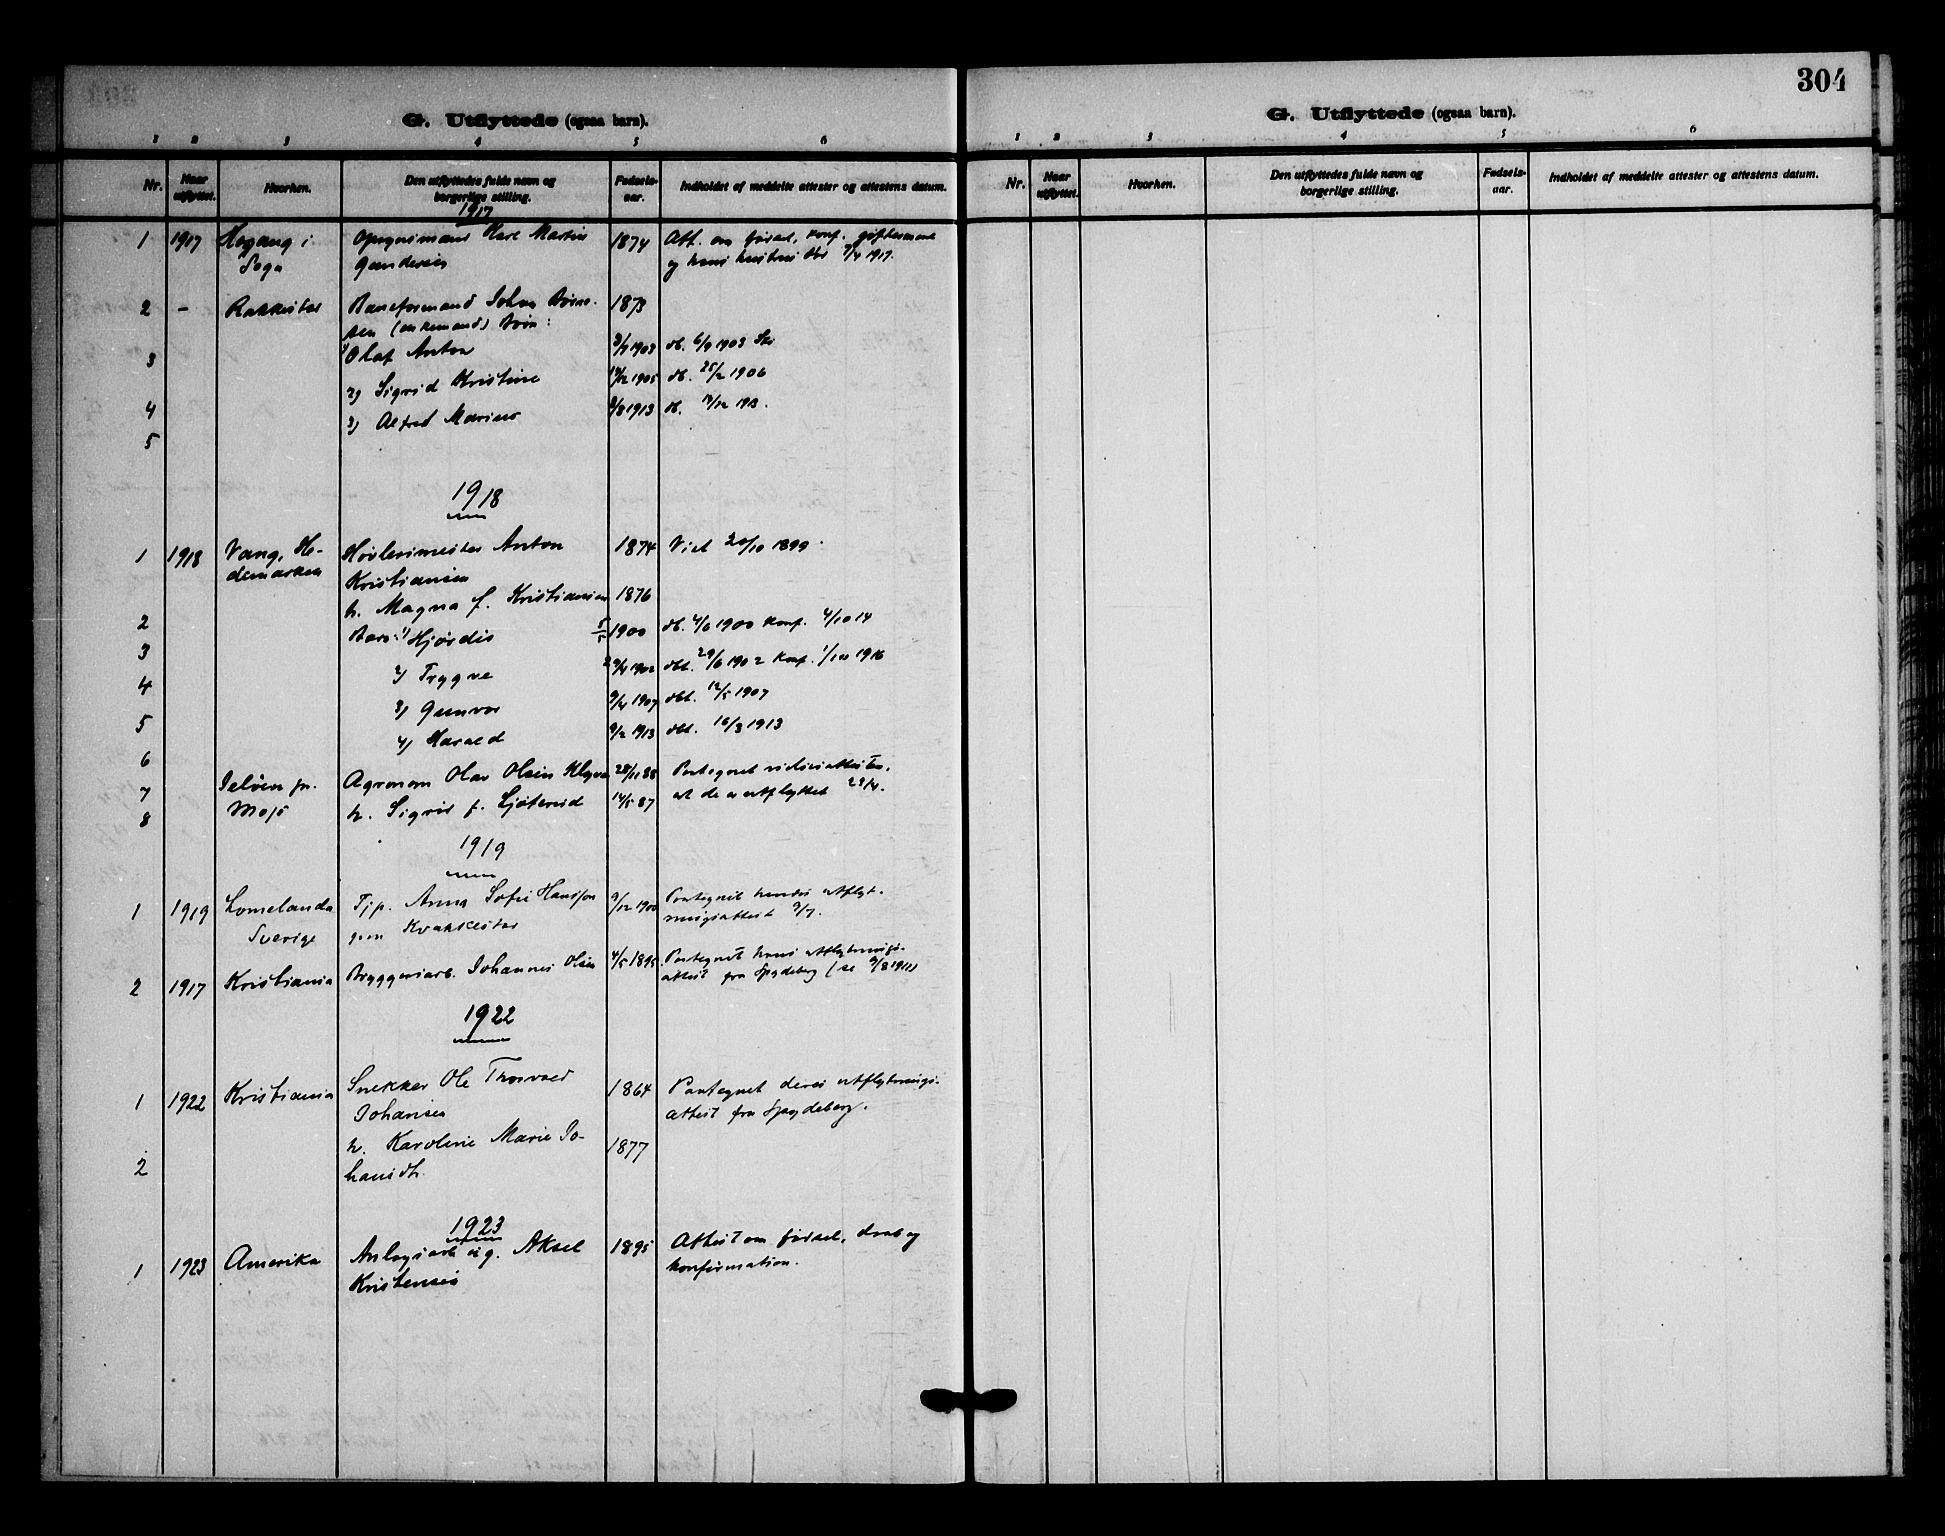 304
G. Utflyttede (ogsaa barn).
1 2 3 4 5 6
Nr. Naar utflyttet. Hvorhen. Den utflyttedes fulde navn og borgerlige stilling. Fødsels-aar. Indholdet af meddelte attester og attestens datum.
1917
1 1917 i Karl Martin 1874 Att. om fødsel, konf.
1917.
2 - Rakkestad Baneformand Johan 1873
3 Olaf Anton 1903 db. 6/9 1903
4 2) Sigrid Kristine 1905 db. 25/2 1906
5 3) Alfred Marius 1913 db.
1918
1 1918 Vang, He- Høvlerimester Anton 1874 Viet 20/10 1899
demarken Kristiansen
2 h. Magna f. Kristiansen 1876
3 Barn: 1) Hjørdis 1900 db. 4/6 1900 konf. 4/10 14
4 2) Trygve 1902 dbt. 29/6 1902 konf. 1/10 1916
5 3) Gunvor 9/4 1907 dbt. 12/5 1907
6 4) Harald 9/2 1913 dbt. 16/3 1913
7 Jeløen pr. Agronom Olav Olsen 28/11 88 Paategnet
8 Moss h. Sigrid f. 14/5 87 at de er utflyttet 23/4.
1919
1 1919 Lomelanda Tjp. Anna Sofie Hansson 9/12 1900 Paategnet hendes utflyt-
Sverige ningsattest 9/7.
2 1917 Kristiania Bryggeriarb. Johannes Olsen 4/5 1895 Paategnet hans utflytnings-
attest fra Spydeberg (se
1922
1 1922 Kristiania Snekker Ole Thorvald 1864 Paategnet deres utflytnings-
Johansen attest fra Spydeberg.
2 h. Karoline Marie Jo- 1877
hansdtr.
1923
1 1923 Amerika Anlegsarb. ug. Aksel 1895 Attest om fødsel, daab og
Kristensen konfirmation.
G. Utflyttede (ogsaa barn).
1 2 3 4 5 6
Nr. Naar utflyttet. Hvorhen. Den utflyttedes fulde navn og borgerlige stilling. Fødsels-aar. Indholdet af meddelte attester og attestens datum.